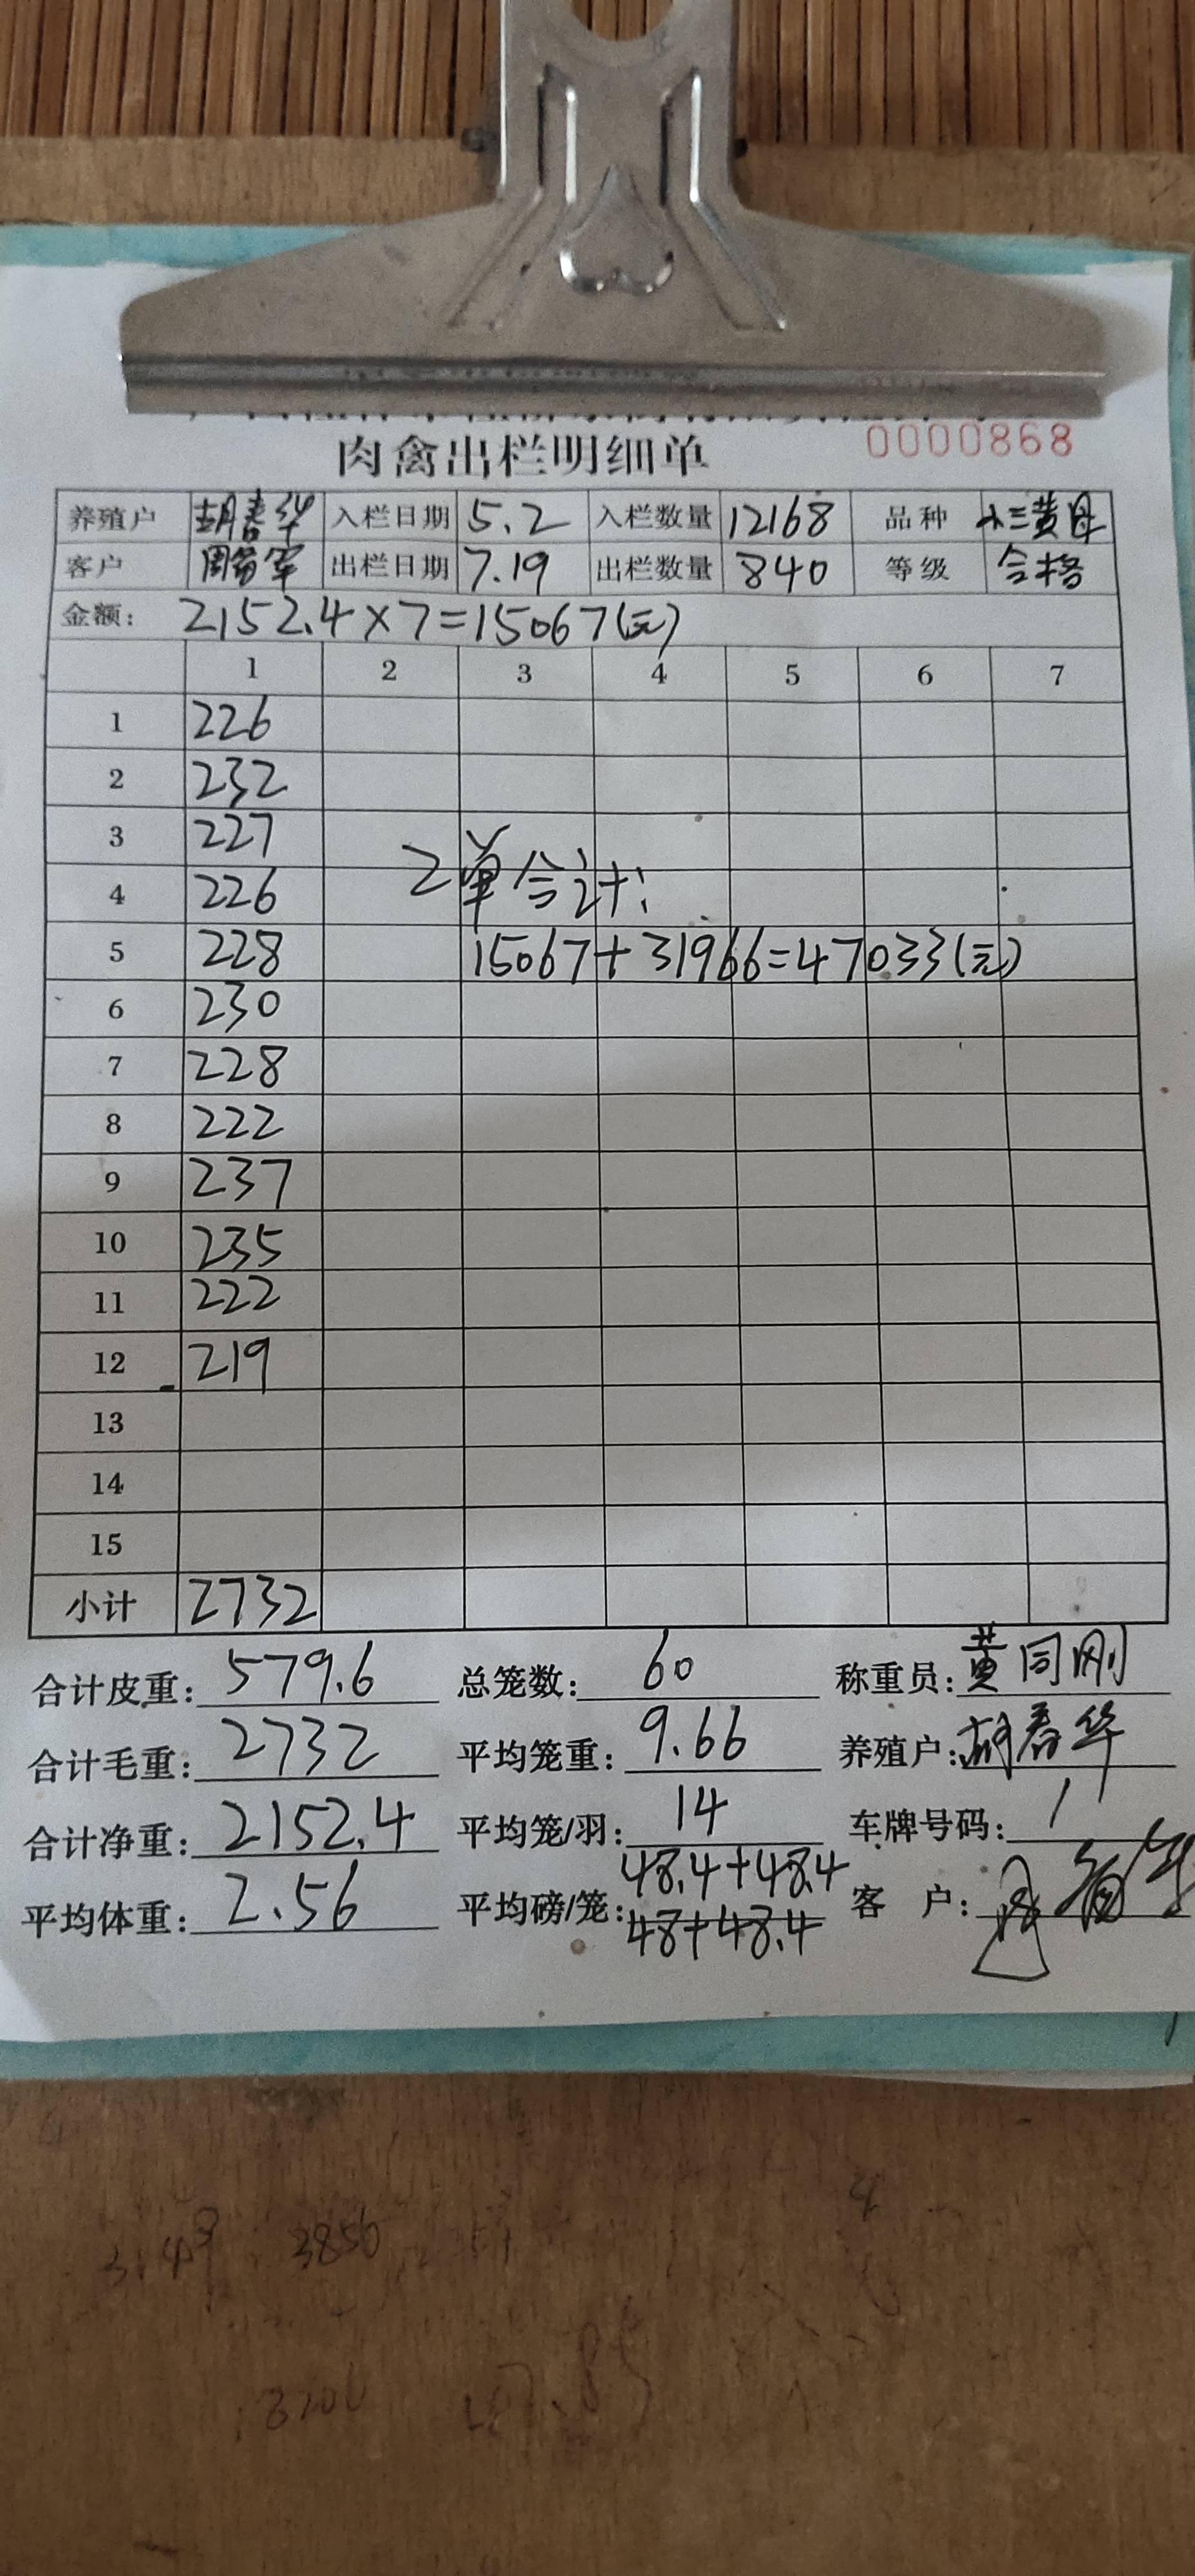 肉禽出栏明细单 0000868
养殖户 胡春华 入栏日期 5.2 入栏数量 12168 品种 小三黄母
客户 出栏日期 7.19 出栏数量 840 等级 合格
金额: 2152.4×7=15067(元)
1 2 3 4 5 6 7
1 226
2 232
3 227
2单合计:
4 226
5 228 15067+31966=47033(元)
6 230
7 228
8 222
9 237
10 235
11 222
12 219
13
14
15
小计 2732
合计皮重: 579.6 总笼数: 60 称重员: 黄同刚
合计毛重: 2732 平均笼重: 9.66 养殖户: 胡春华
合计净重: 2152.4 平均笼/羽: 14 车牌号码: /
48.4+48.4
平均体重: 2.56 平均磅/笼: 48+48.4 客 户:
3850